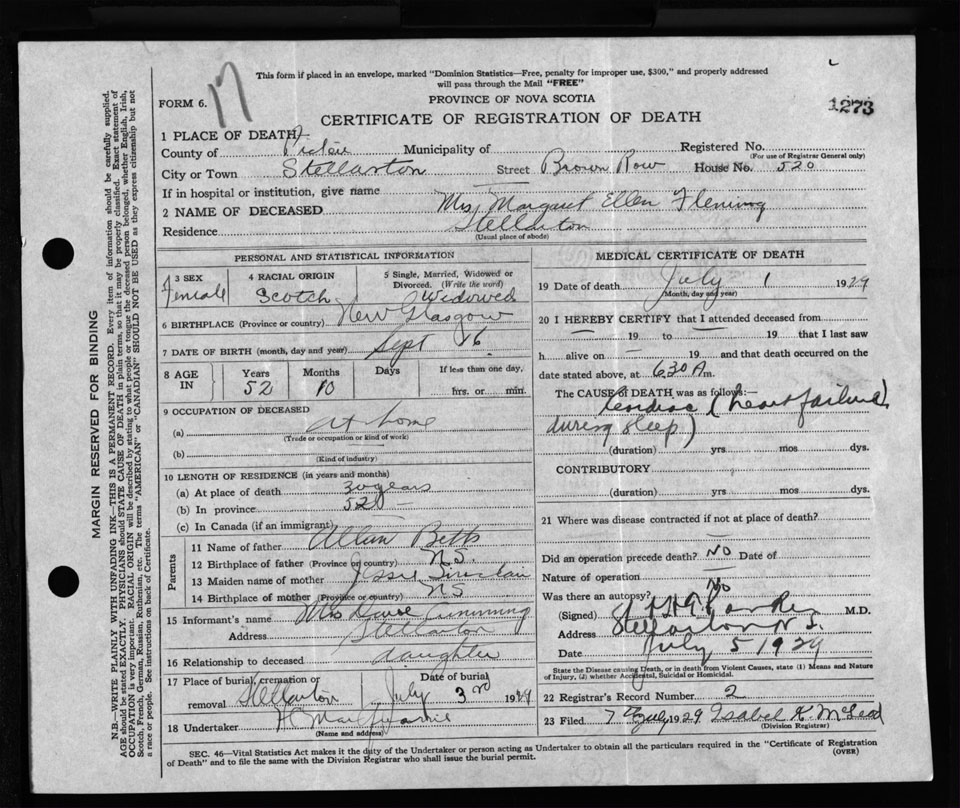 17
This form if placed in an envelope, marked "Dominion Statistics—Free, penalty for improper use, $300," and properly addressed
will pass through the Mail "FREE"
FORM 6.
PROVINCE OF NOVA SCOTIA
1273
CERTIFICATE OF REGISTRATION OF DEATH
1 PLACE OF DEATH
County of Pictou Municipality of Registered No.
(For use of Registrar General only)
City or Town Stellarton Street Brown Row House No. 520
If in hospital or institution, give name
2 NAME OF DECEASED Mrs Margaret Ellen Fleming
Residence Stellarton
(Usual place of abode)
PERSONAL AND STATISTICAL INFORMATION
3 SEX Female
4 RACIAL ORIGIN Scotch
5 Single, Married, Widowed or Divorced. (Write the word) Widowed
6 BIRTHPLACE (Province or country) New Glasgow
7 DATE OF BIRTH (month, day and year) Sept 16
8 AGE IN Years 52 Months 10 Days If less than one day, hrs. or min.
9 OCCUPATION OF DECEASED
(a) at home
(Trade or occupation or kind of work)
(b)
(Kind of industry)
10 LENGTH OF RESIDENCE (in years and months)
(a) At place of death 30 years
(b) In province 52
(c) In Canada (if an immigrant)
Parents
11 Name of father Betts
12 Birthplace of father (Province or country) N.S.
13 Maiden name of mother Jessie Sinclair
14 Birthplace of mother (Province or country) NS
15 Informant's name Mrs Cumming
Address Stellarton
16 Relationship to deceased daughter
17 Place of burial, cremation or removal Stellarton Date of burial July 3rd 1929
18 Undertaker
(Name and address)
MEDICAL CERTIFICATE OF DEATH
19 Date of death July 1 1929
(Month, day and year)
20 I HEREBY CERTIFY that I attended deceased from
19 to 19 that I last saw
h alive on 19 and that death occurred on
date stated above, at 6.30 A m.
The CAUSE OF DEATH was as follows:—
Cardiac (heart failure
during sleep)
(duration) yrs mos dys.
CONTRIBUTORY
(duration) yrs mos dys.
21 Where was disease contracted if not at place of death?
Did an operation precede death? No Date of
Nature of operation
Was there an autopsy? No
(Signed) M.D.
Address Stellarton N.S.
Date July 5 1929
State the Disease causing Death, or in death from Violent Causes, state (1) Means and Nature
of Injury, (2) whether Accidental, Suicidal or Homicidal.
22 Registrar's Record Number 2
23 Filed 7th July 1929 Isabel K. McLeod
(Division Registrar)
SEC. 46—Vital Statistics Act makes it the duty of the Undertaker or person acting as Undertaker to obtain all the particulars required in the "Certificate of Registration
of Death" and to file the same with the Division Registrar who shall issue the burial permit.
(OVER)
MARGIN RESERVED FOR BINDING
N.B.—WRITE PLAINLY WITH UNFADING INK—THIS IS A PERMANENT RECORD. Every item of information should be carefully supplied.
AGE should be stated EXACTLY. PHYSICIANS should STATE CAUSE OF DEATH in plain terms, so that it may be properly classified. Exact statement of
OCCUPATION is very important. RACIAL ORIGIN will be described by stating to what people or tongue the deceased person belonged, whether English, Irish,
Scotch, French, German, Russian, Ruthenian, etc. The terms "AMERICAN" or "CANADIAN" SHOULD NOT BE USED as they express citizenship but not
a race or people. See instructions on back of Certificate.